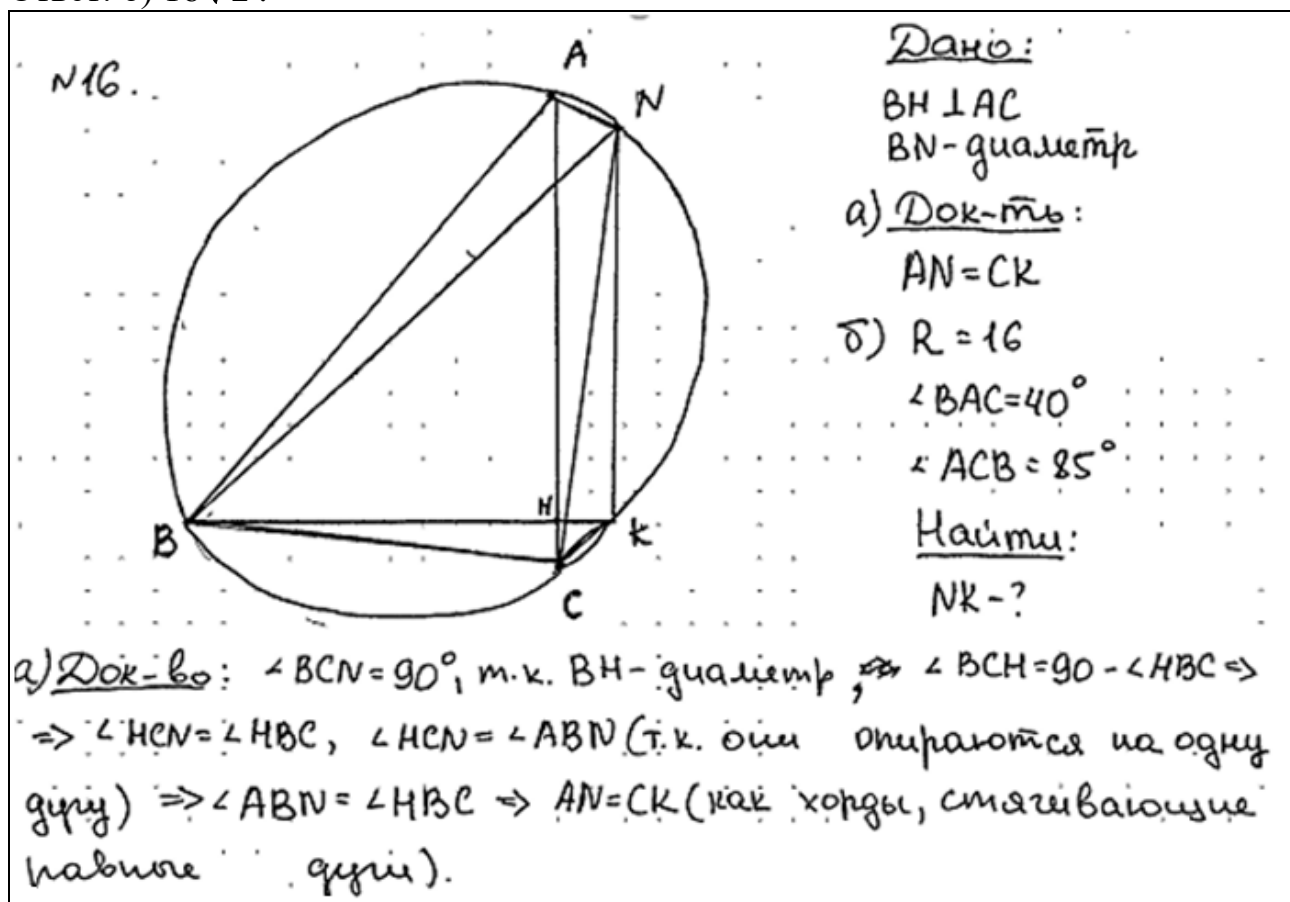 №16.
A
N
B
H
K
C
Дано:
BH ⊥ AC
BN - диаметр
а) Док-ть:
AN = CK
б) R = 16
∠BAC = 40°
∠ACB = 85°
Найти:
NK - ?
а) Док-во: ∠BCN = 90°, т.к. BH - диаметр, ∠BCH = 90 - ∠HBC =>
=> ∠HCN = ∠HBC, ∠HCN = ∠ABN (т.к. они опираются на одну
дугу) => ∠ABN = ∠HBC => AN = CK (как хорды, стягивающие
равные дуги).